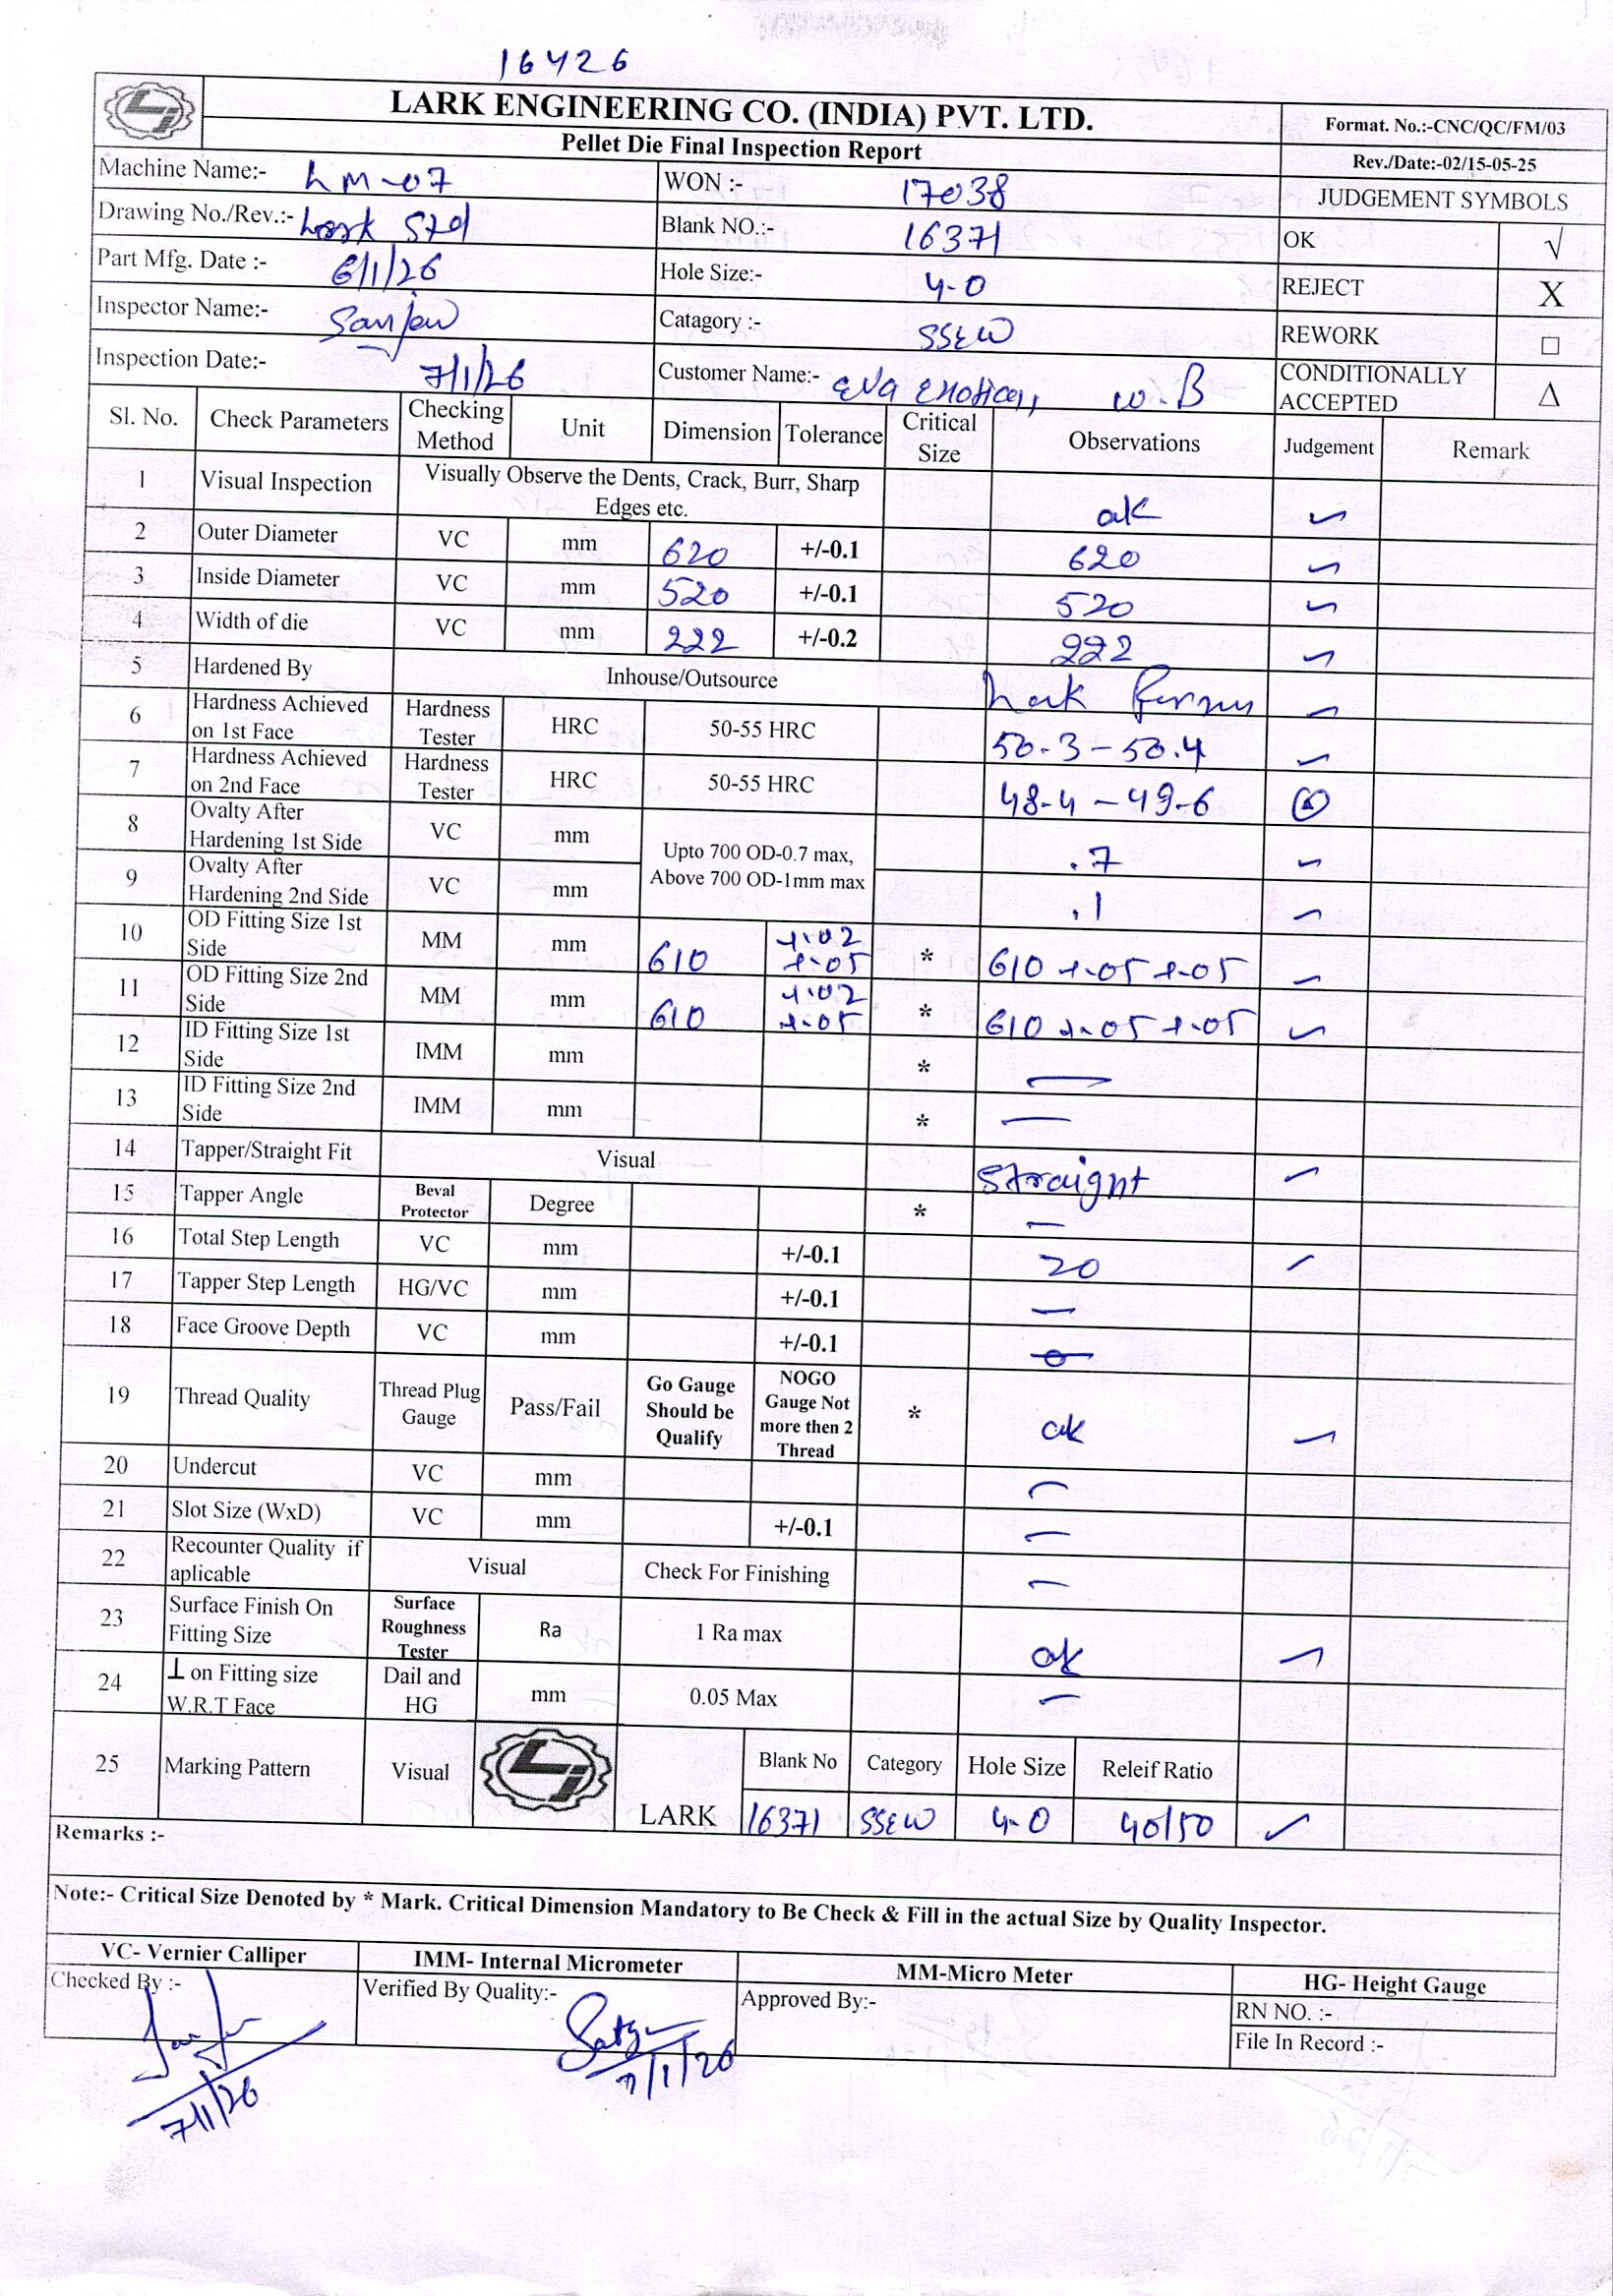 16426
LARK ENGINEERING CO. (INDIA) PVT. LTD.
Pellet Die Final Inspection Report
Format. No.:-CNC/QC/FM/03
Rev./Date:-02/15-05-25
Machine Name:- LM-07 WON :- 17038 JUDGEMENT SYMBOLS
Drawing No./Rev.:- Lark Std Blank NO.:- 16371 OK √
Part Mfg. Date :- 6/1/26 Hole Size:- 4.0 REJECT X
Inspector Name:- Sanjew Catagory :- SSEW REWORK □
Inspection Date:- 7/1/26 Customer Name:- Eva W.B CONDITIONALLY ACCEPTED Δ
Sl. No. Check Parameters Checking Method Unit Dimension Tolerance Critical Size Observations Judgement Remark
1 Visual Inspection Visually Observe the Dents, Crack, Burr, Sharp Edges etc. ok √
2 Outer Diameter VC mm 620 +/-0.1 620 √
3 Inside Diameter VC mm 520 +/-0.1 520 √
4 Width of die VC mm 222 +/-0.2 222 √
5 Hardened By Inhouse/Outsource Lark √
6 Hardness Achieved on 1st Face Hardness Tester HRC 50-55 HRC 50.3-50.4 √
7 Hardness Achieved on 2nd Face Hardness Tester HRC 50-55 HRC 48.4-49.6
8 Ovalty After Hardening 1st Side VC mm Upto 700 OD-0.7 max, Above 700 OD-1mm max .7 √
9 Ovalty After Hardening 2nd Side VC mm .1 √
10 OD Fitting Size 1st Side MM mm 610 +.02 +.05 * 610 +.05 +.05 √
11 OD Fitting Size 2nd Side MM mm 610 +.02 +.05 * 610 +.05 +.05 √
12 ID Fitting Size 1st Side IMM mm * —
13 ID Fitting Size 2nd Side IMM mm * —
14 Tapper/Straight Fit Visual Straight √
15 Tapper Angle Beval Protector Degree * —
16 Total Step Length VC mm +/-0.1 20 √
17 Tapper Step Length HG/VC mm +/-0.1 —
18 Face Groove Depth VC mm +/-0.1 —
19 Thread Quality Thread Plug Gauge Pass/Fail Go Gauge Should be Qualify NOGO Gauge Not more then 2 Thread * ok √
20 Undercut VC mm —
21 Slot Size (WxD) VC mm +/-0.1 —
22 Recounter Quality if aplicable Visual Check For Finishing —
23 Surface Finish On Fitting Size Surface Roughness Tester Ra 1 Ra max ok √
24 ⊥ on Fitting size W.R.T Face Dail and HG mm 0.05 Max —
25 Marking Pattern Visual LARK Blank No Category Hole Size Releif Ratio
16371 SSEW 4.0 40/50 √
Remarks :-
Note:- Critical Size Denoted by * Mark. Critical Dimension Mandatory to Be Check & Fill in the actual Size by Quality Inspector.
VC- Vernier Calliper IMM- Internal Micrometer MM-Micro Meter HG- Height Gauge
Checked By :- Verified By Quality:- Approved By:- RN NO. :-
File In Record :-
7/1/26 7/1/26